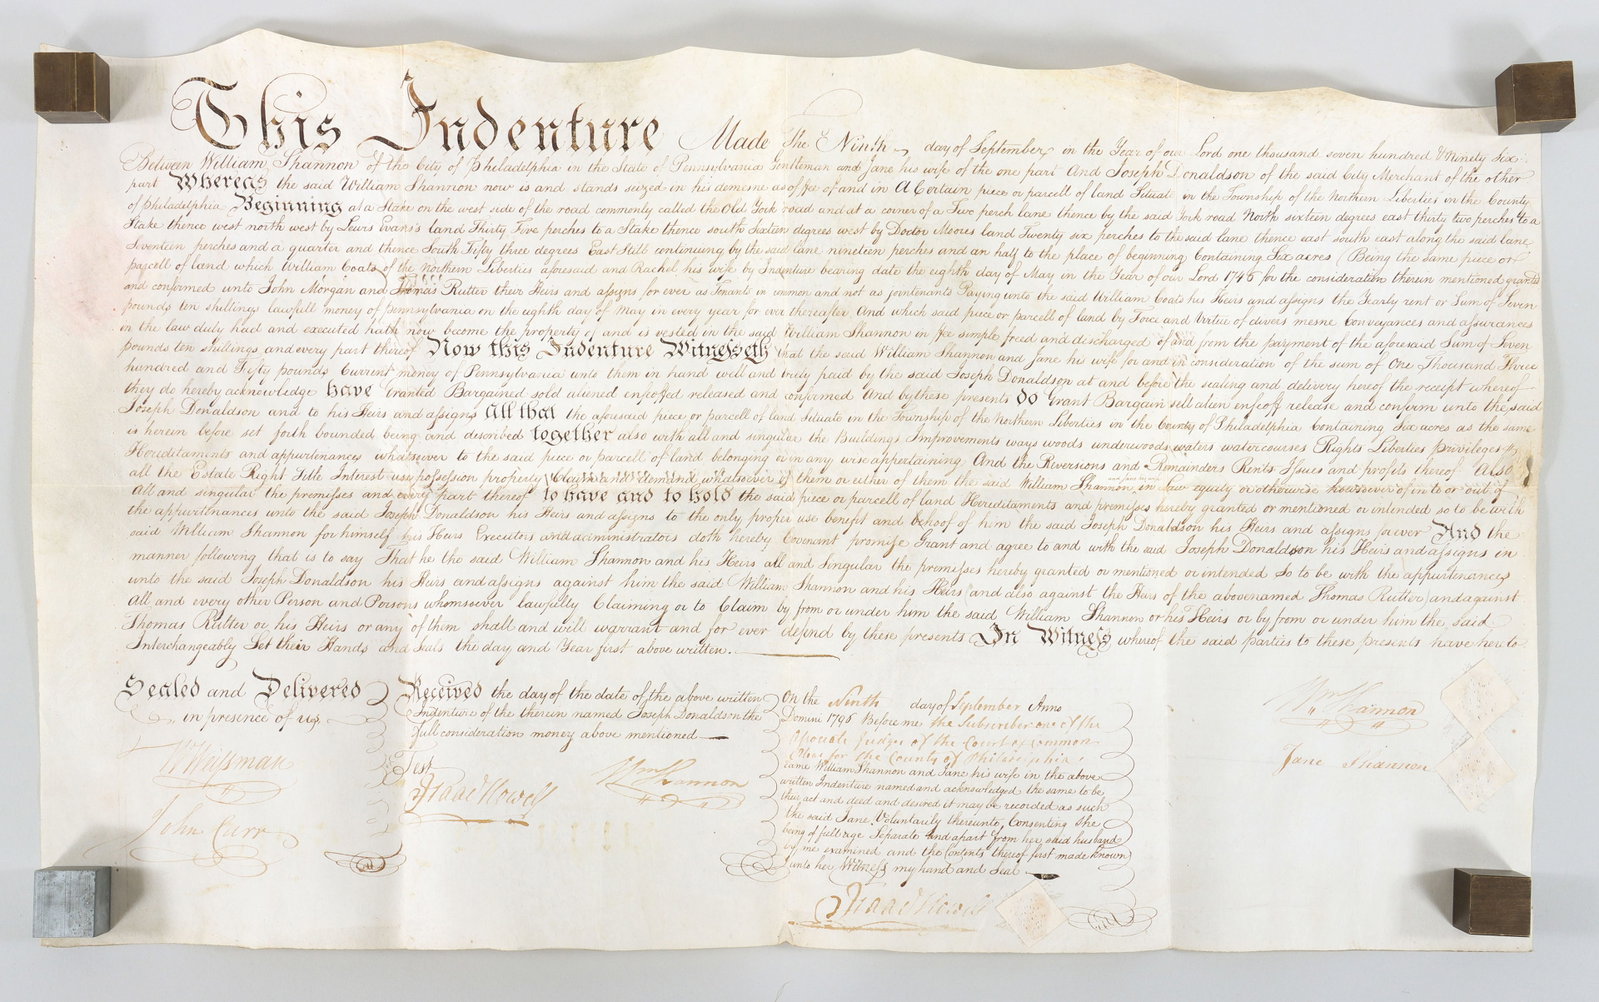 This Indenture Made The Ninth day of September in the Year of our Lord one thousand seven hundred & Ninety Six
Between William Shannon of the City of Philadelphia in the State of Pennsylvania Gentleman and Jane his wife of the one part And Joseph Donaldson of the said City Merchant of the other
part Whereas the said William Shannon now is and stands seized in his demesne as of fee of and in A Certain piece or parcell of land Situate in the Township of the Northern Liberties in the County
of Philadelphia Beginning at a Stake on the west side of the road commonly called the Old York road and at a corner of a Two perch lane thence by the said York road North sixteen degrees east thirty two perches to a
Stake thence west north west by Lewis Evans's land Thirty Five perches to a Stake thence south Sixteen degrees west by Doctor Moores land Twenty six perches to the said lane thence east south east along the said lane
Seventeen perches and a quarter and thence South Fifty three degrees East Still continueing by the said lane nineteen perches and an half to the place of beginning Containing Six acres (Being the same piece or
parcell of land which William Coats of the Northern Liberties aforesaid and Rachel his wife by Indenture bearing date the eighth day of May in the Year of our Lord 1746 for the consideration therein mentioned granted
and confirmed unto John Morgan and Thomas Rutter their Heirs and assigns for ever as Tenants in common and not as jointenants Paying unto the said William Coats his Heirs and assigns the Yearly rent or Sum of Seven
pounds ten shillings lawfull money of Pennsylvania on the eighth day of May in every year for ever thereafter And which said piece or parcell of land by Force and Virtue of divers mesne Conveyances and assurances
in the law duly had and executed hath now become the property of and is vested in the said William Shannon in fee simple freed and discharged of and from the payment of the aforesaid Sum of Seven
pounds ten shillings and every part thereof Now this Indenture Witnesseth that the said William Shannon and Jane his wife for and in consideration of the sum of One Thousand Three
hundred and Fifty pounds Current money of Pennsylvania unto them in hand well and truly paid by the said Joseph Donaldson at and before the sealing and delivery hereof the receipt whereof
they do hereby acknowledge have Granted Bargained sold aliened enfeoffed released and confirmed And by these presents Do Grant Bargain sell alien enfeoff release and confirm unto the said
Joseph Donaldson and to his Heirs and assigns All that the aforesaid piece or parcell of land Situate in the Township of the Northern Liberties in the County of Philadelphia Containing Six acres as the same
is herein before set forth bounded being and described together also with all and singular the Buildings Improvements ways woods underwoods waters watercourses Rights Liberties privileges
Hereditaments and appurtenances whatsoever to the said piece or parcell of land belonging or in any wise appertaining And the Reversions and Remainders Rents Issues and profits thereof Also
all the Estate Right Title Interest use possession property Claim and demand whatsoever of them or either of them the said William Shannon in Law equity or otherwise howsoever of in to or out of
All and singular the premisses and every part thereof to have and to hold the said piece or parcell of land Hereditaments and premisses hereby granted or mentioned or intended so to be with
the appurtenances unto the said Joseph Donaldson his Heirs and assigns to the only proper use benefit and behoof of him the said Joseph Donaldson his Heirs and assigns forever And the
said William Shannon for himself his Heirs Executors and administrators doth hereby Covenant promise Grant and agree to and with the said Joseph Donaldson his Heirs and assigns in
manner following that is to say That he the said William Shannon and his Heirs all and Singular the premisses hereby granted or mentioned or intended so to be with the appurtenances
unto the said Joseph Donaldson his Heirs and assigns against him the said William Shannon and his Heirs (and also against the Heirs of the abovenamed Thomas Rutter) and against
All and every other Person and Persons whomsoever lawfully Claiming or to Claim by from or under him the said William Shannon or his Heirs or by from or under him the said
Thomas Rutter or his Heirs or any of them shall and will warrant and for ever defend by these presents In Witness whereof the said parties to these presents have hereto
Interchangeably Set their Hands and Seals the day and Year first above written.
Sealed and Delivered
in presence of us
John Carr
Received the day of the date of the above written
Indenture of the therein named Joseph Donaldson the
full consideration money above mentioned
Test
Isaac Howell
Wm Shannon
On the Ninth day of September Anno
Domini 1796 Before me the Subscriber one of the
Asociate Judges of the Court of Common
Pleas for the County of Philadelphia
came William Shannon and Jane his wife in the above
written Indenture named and acknowledged the same to be
their act and deed and desired it may be recorded as such
the said Jane Voluntarily thereunto Consenting She
being of full age Separate and apart from her said husband
by me examined and the Contents thereof first made known
unto her Witness my hand and Seal
Isaac Howell
Wm Shannon
Jane Shannon